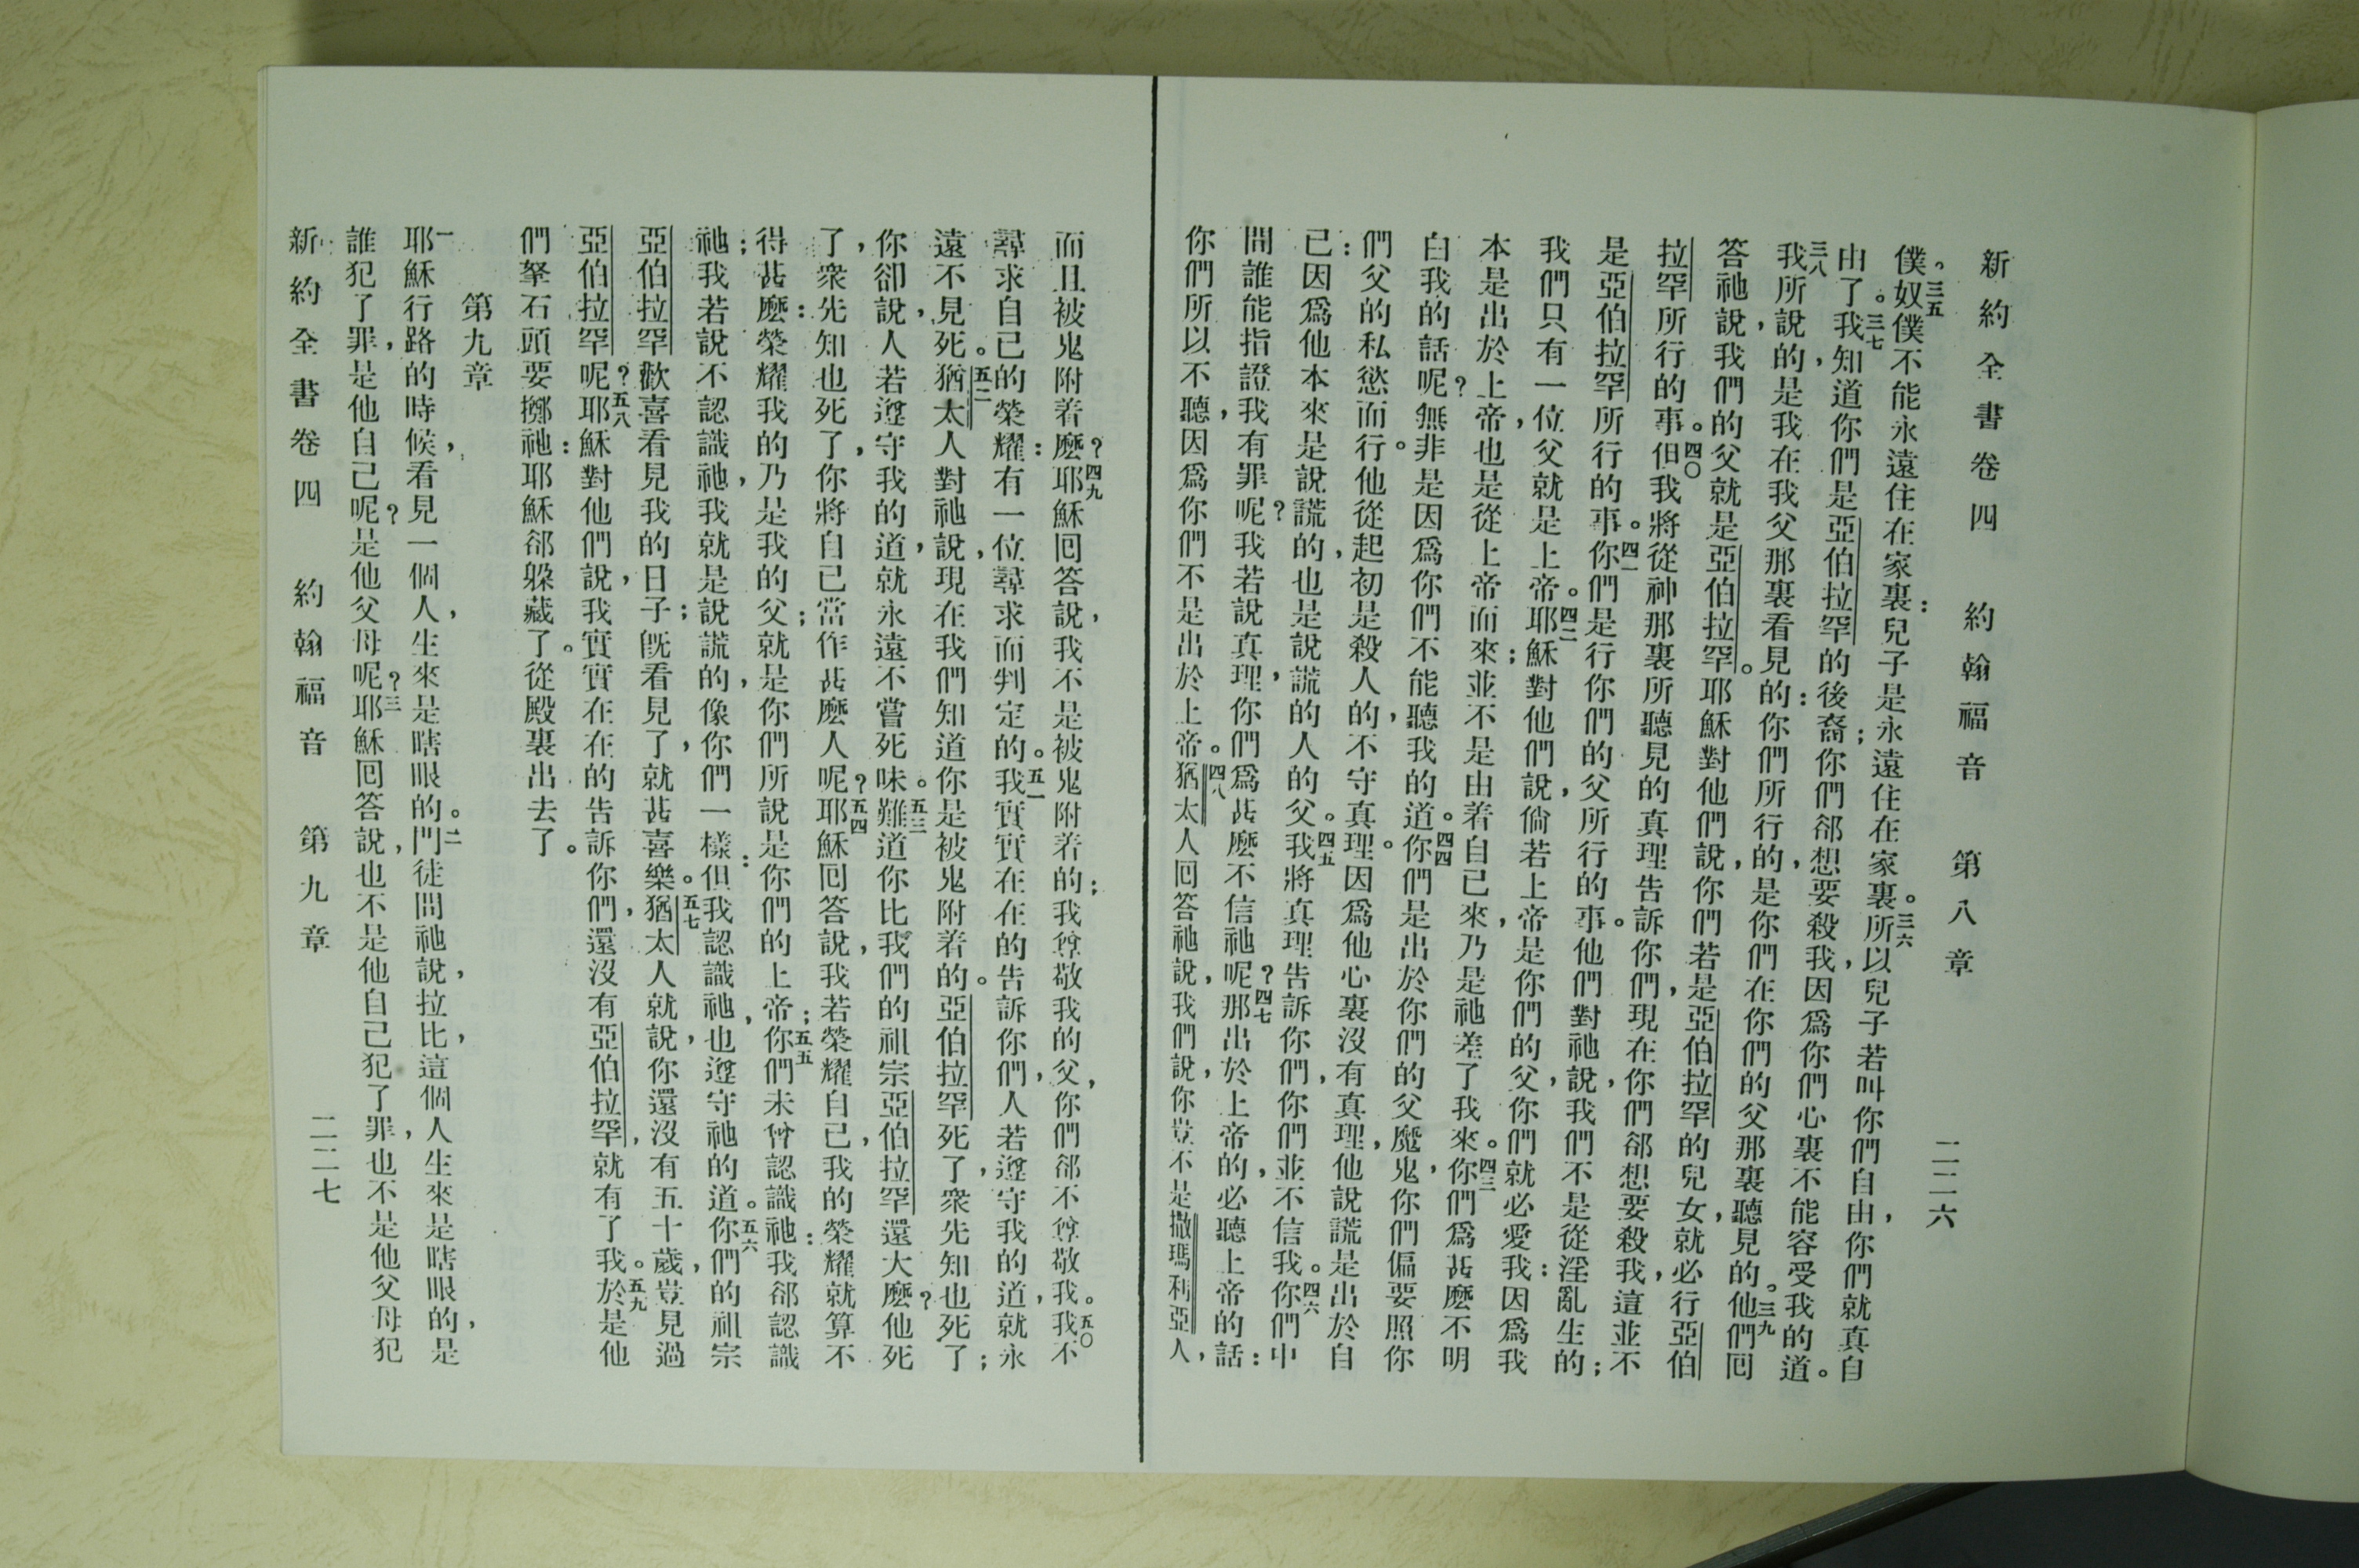 新約全書卷四　約翰福音　第八章　二二六
僕。三五奴僕不能永遠住在家裏：兒子是永遠住在家裏。三六所以兒子若叫你們自由，你們就真自
由了。三七我知道你們是亞伯拉罕的後裔；你們郤想要殺我，因爲你們心裏不能容受我的道。
三八我所說的，是我在我父那裏看見的：你們所行的，是你們在你們的父那裏聽見的。三九他們囘
答祂說，我們的父就是亞伯拉罕。耶穌對他們說，你們若是亞伯拉罕的兒女，就必行亞伯
拉罕所行的事。四〇但我將從神那裏所聽見的真理告訴你們，現在你們郤想要殺我，這並不
是亞伯拉罕所行的事。四一你們是行你們的父所行的事。他們對祂說，我們不是從淫亂生的；
我們只有一位父，就是上帝。四二耶穌對他們說，倘若上帝是你們的父，你們就必愛我：因爲我
本是出於上帝，也是從上帝而來；並不是由着自己來，乃是祂差了我來。四三你們爲甚麼不明
白我的話呢？無非是因爲你們不能聽我的道。四四你們是出於你們的父魔鬼，你們偏要照你
們父的私慾而行。他從起初是殺人的，不守真理。因爲他心裏沒有真理，他說謊是出於自
己：因爲他本來是說謊的，也是說謊的人的父。四五我將真理告訴你們，你們並不信我。四六你們中
間誰能指證我有罪呢？我若說真理，你們爲甚麼不信祂呢？四七那出於上帝的，必聽上帝的話：
你們所以不聽，因爲你們不是出於上帝。四八猶太人囘答祂說，我們說，你豈不是撒瑪利亞人，
而且被鬼附着麼？四九耶穌囘答說，我不是被鬼附着的；我尊敬我的父，你們郤不尊敬我。五〇我不
尋求自己的榮耀：有一位尋求而判定的。五一我實實在在的告訴你們，人若遵守我的道，就永
遠不見死。五二猶太人對祂說，現在我們知道你是被鬼附着的。亞伯拉罕死了，衆先知也死了；
你卻說，人若遵守我的道，就永遠不嘗死味。五三難道你比我們的祖宗亞伯拉罕還大麼？他死
了，衆先知也死了，你將自己當作甚麼人呢？五四耶穌囘答說，我若榮耀自己，我的榮耀就算不
得甚麼：榮耀我的乃是我的父；就是你們所說是你們的上帝；五五你們未曾認識祂：我郤認識
祂；我若說不認識祂，我就是說謊的，像你們一樣：但我認識祂，也遵守祂的道。五六你們的祖宗
亞伯拉罕歡喜看見我的日子；旣看見了，就甚喜樂。五七猶太人就說，你還沒有五十歲，豈見過
亞伯拉罕呢？五八耶穌對他們說，我實實在在的告訴你們，還沒有亞伯拉罕，就有了我。五九於是他
們拏石頭要擲祂：耶穌郤躲藏了。從殿裏出去了。
第九章
一耶穌行路的時候，看見一個人，生來是瞎眼的。二門徒問祂說，拉比，這個人生來是瞎眼的，是
誰犯了罪，是他自己呢？是他父母呢？三耶穌囘答說，也不是他自己犯了罪，也不是他父母犯
新約全書卷四　約翰福音　第九章　二二七